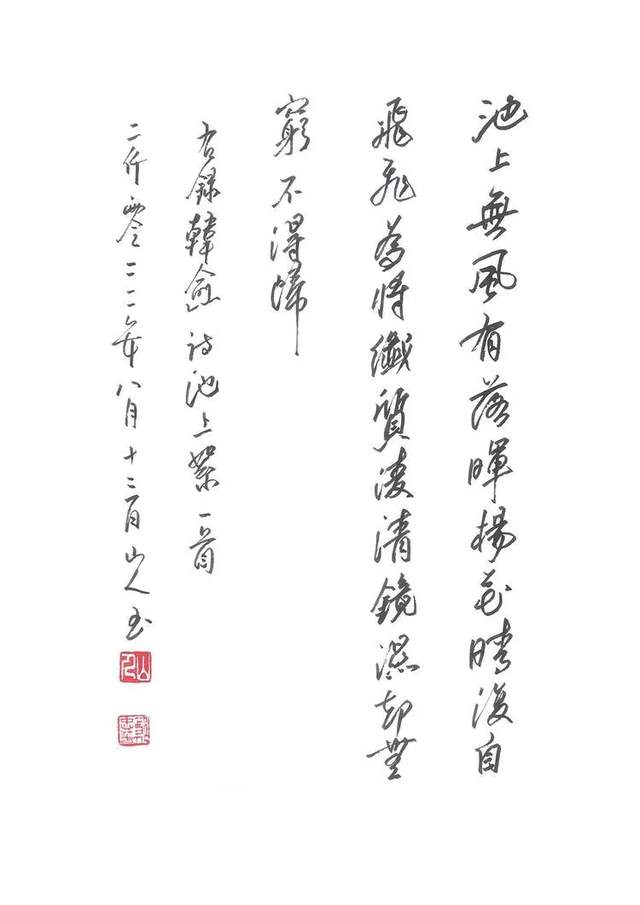 池上無風有落暉楊花晴後自
飛飛為將纖質凌清鏡濕却無
窮不得歸
右録韓愈詩池上絮一首
二仟零二二年八月十二日山人
山人